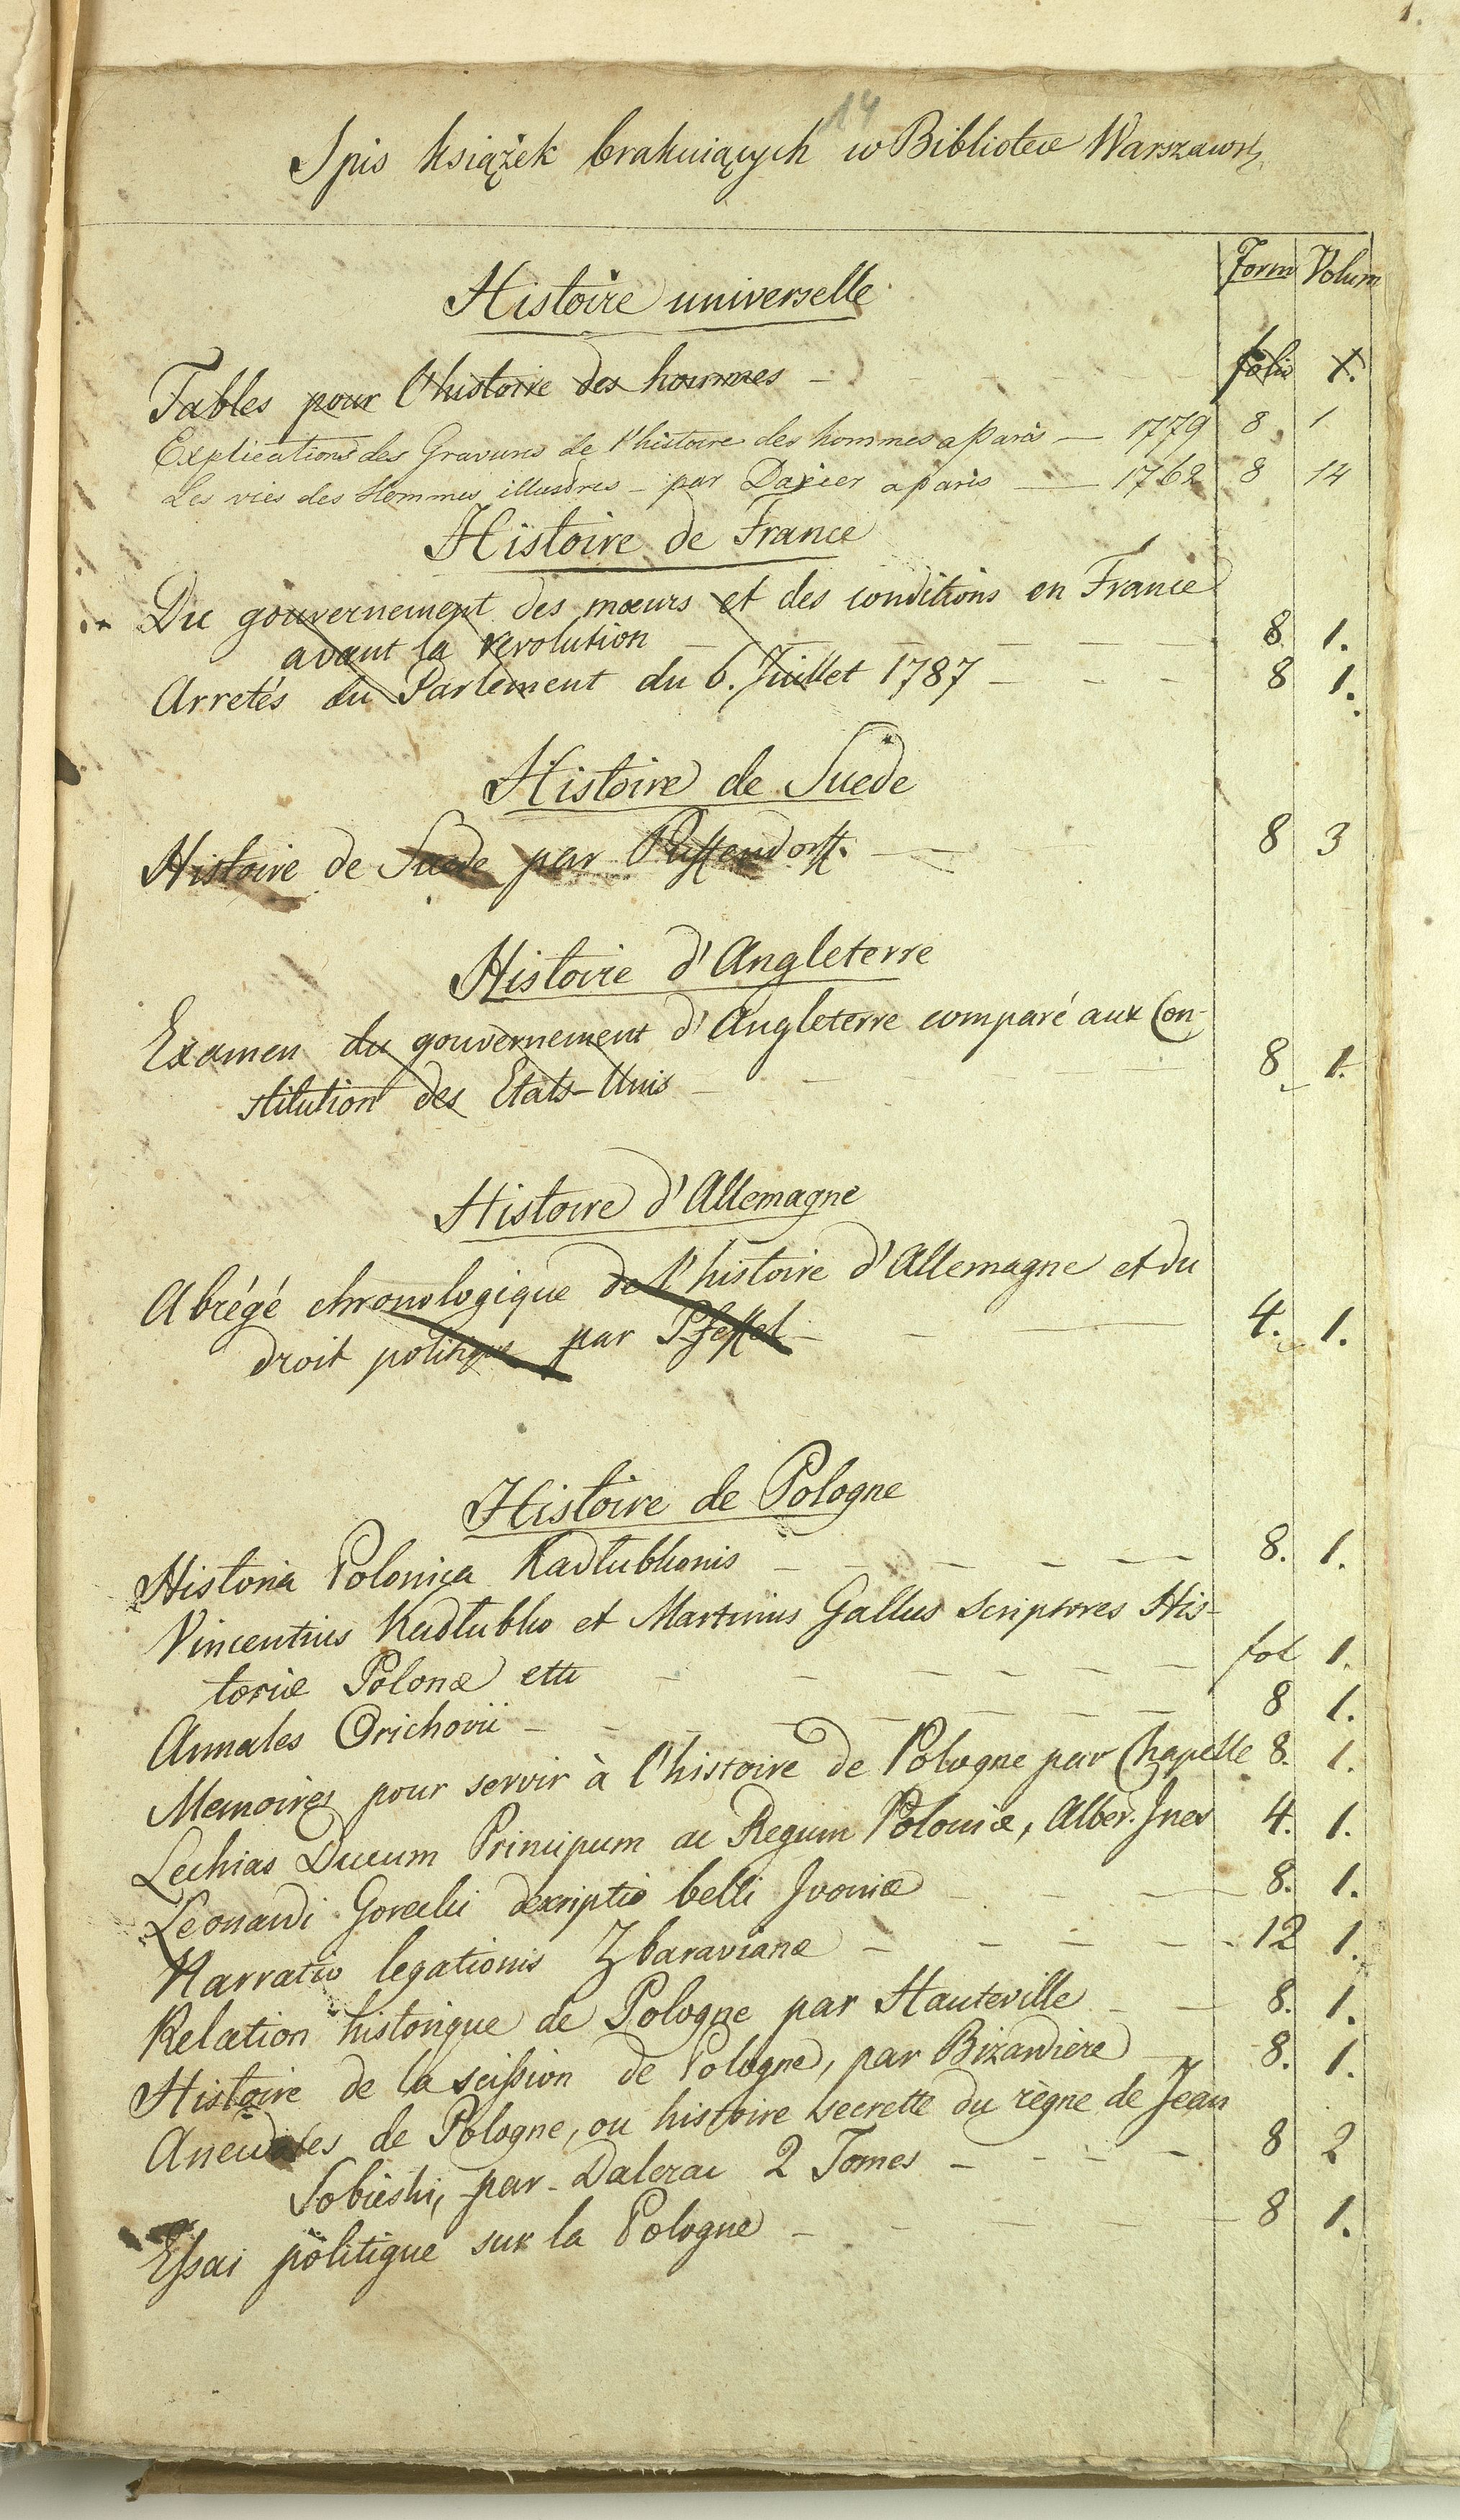 1.
14
Spis książek brakuiących w Bibliotece Warszawsk
Form Volum
Histoire universelle
Tables pour l'histoire des hommes folio 1.
Explications des Gravures de l'histoire des hommes a paris — 1779 8 1
Les vies des Hommes illustres - par Dacier a paris — 1762 8 14
Histoire de France
Du gouvernement des mœurs et des conditions en France
avant la revolution 8 1.
Arretés du Parlement du 6. Juillet 1787 8 1.
Histoire de Suede
Histoire de Suede par Puffendorff. 8 3
Histoire d'Angleterre
Examen du gouvernement d'Angleterre comparé aux Con-
stitution des Etats-Unis 8 1.
Histoire d'Allemagne
Abrégé chronologique de l'histoire d'Allemagne et du
droit politique par Pfeffel 4. 1.
Histoire de Pologne
Historia Polonica Kadlubkonis 8. 1.
Vincentius Kadlubko et Martinus Gallus scriptores His-
toriæ Polonæ etc fol 1.
Annales Orichovii 8 1.
Memoires pour servir à l'histoire de Pologne par Chapelle 8. 1.
Lechias Ducum Principum ac Regum Poloniæ, Alber. Ines 4. 1.
Leonardi Gorecki descriptio belli Ivoniæ 8. 1.
Narratio legationis Zbaravianæ 12 1.
Relation historique de Pologne par Hauteville 8. 1.
Histoire de la scission de Pologne, par Bizardière 8. 1.
Anecdotes de Pologne, ou histoire secrette du règne de Jean
Sobieski, par Dalerac 2 Tomes 8 2
Essai politique sur la Pologne 8 1.